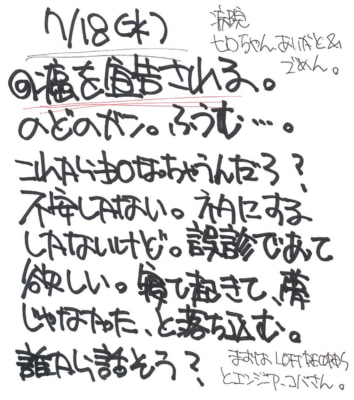 7/18(水)
病院
七口ちゃん、ありがと&
ごめん。
◎癌を宣告される。
のどのガン。ふうむ…。
これからどうなっちゃうんだろ?
不安しかない。ネタにする
しかないけど。誤診であって
欲しい。寝て起きて、夢
じゃなかった、と落ち込む。
誰から話そう?
まずは、LOFT RECORDS
とエンジニア、コバさん。